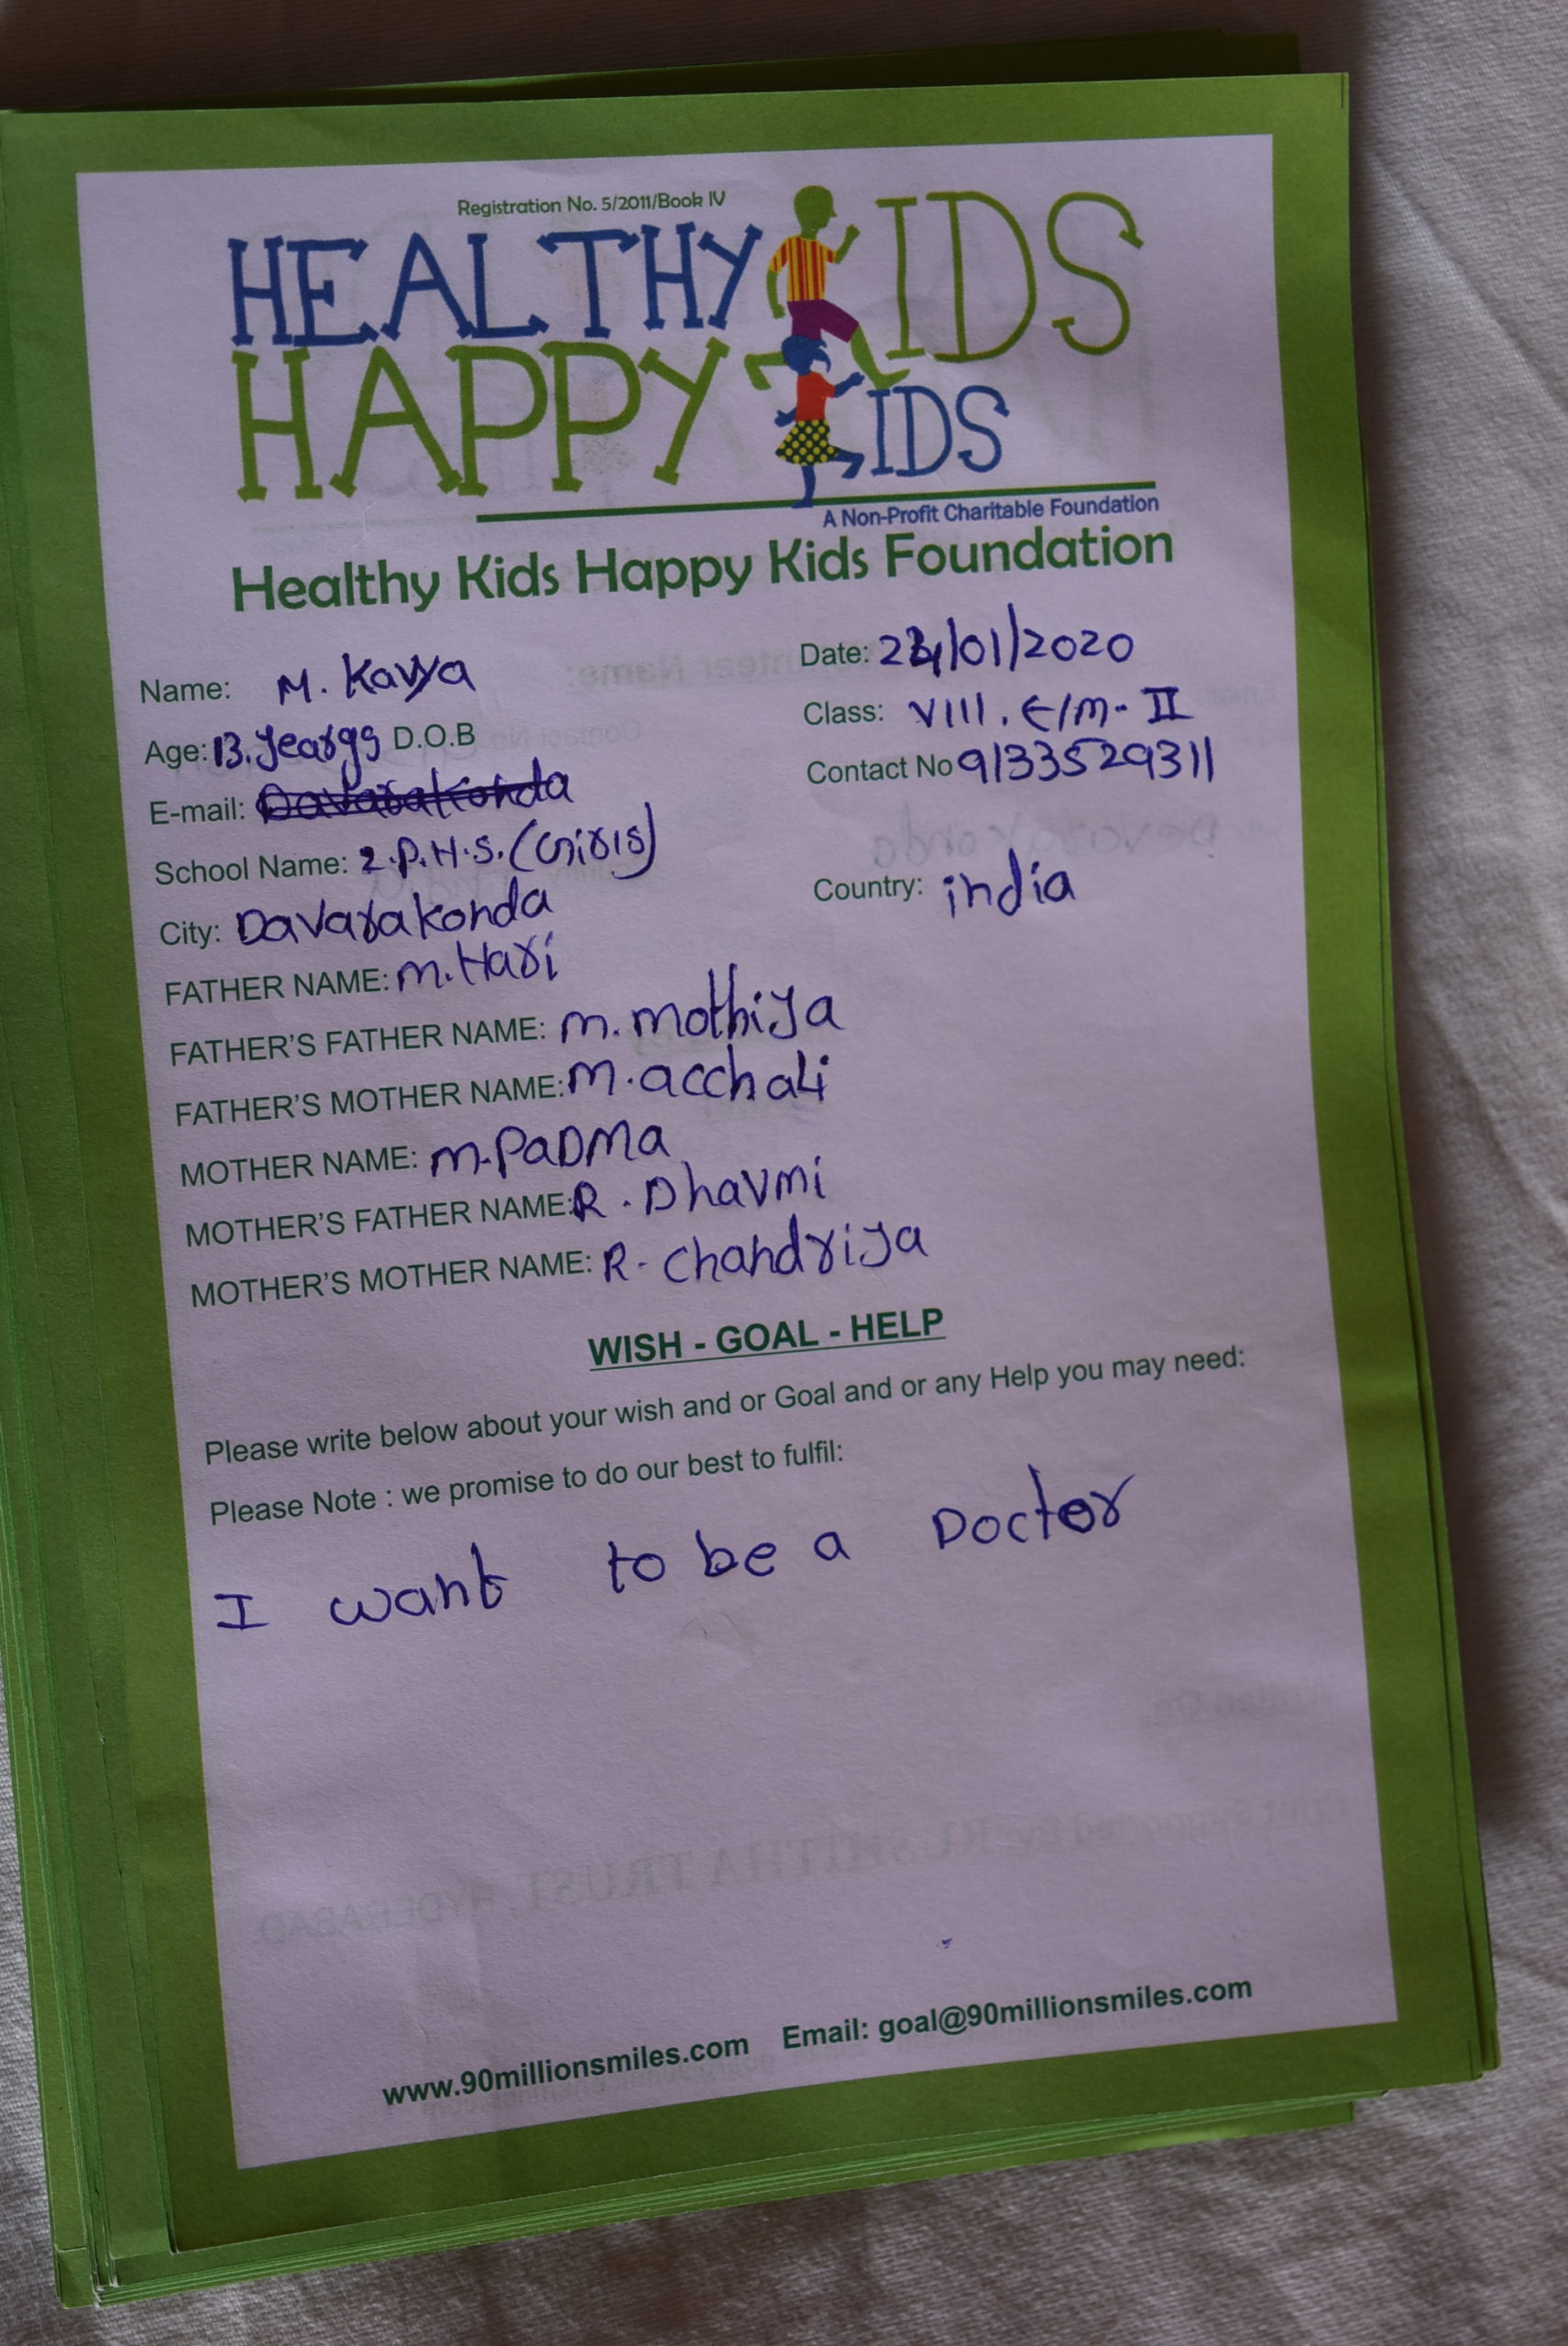 Registration No. 5/2011/Book IV
HEALTHY KIDS
HAPPY KIDS
A Non-Profit Charitable Foundation
Healthy Kids Happy Kids Foundation
Name: M. Kavya
Date: 24/01/2020
Age: 13. yearys D.O.B
Class: VIII. E/m- II
E-mail: Davarakonda
Contact No 9133529311
School Name: z.P.H.S. (Girls)
City: Davarakonda
Country: india
FATHER NAME: m. Hari
FATHER'S FATHER NAME: m. mothiya
FATHER'S MOTHER NAME: m. acchali
MOTHER NAME: m. PaDMa
MOTHER'S FATHER NAME: R. Dhavmi
MOTHER'S MOTHER NAME: R- chandriya
WISH - GOAL - HELP
Please write below about your wish and or Goal and or any Help you may need:
Please Note : we promise to do our best to fulfil:
I want to be a Doctor
www.90millionsmiles.com Email: goal@90millionsmiles.com